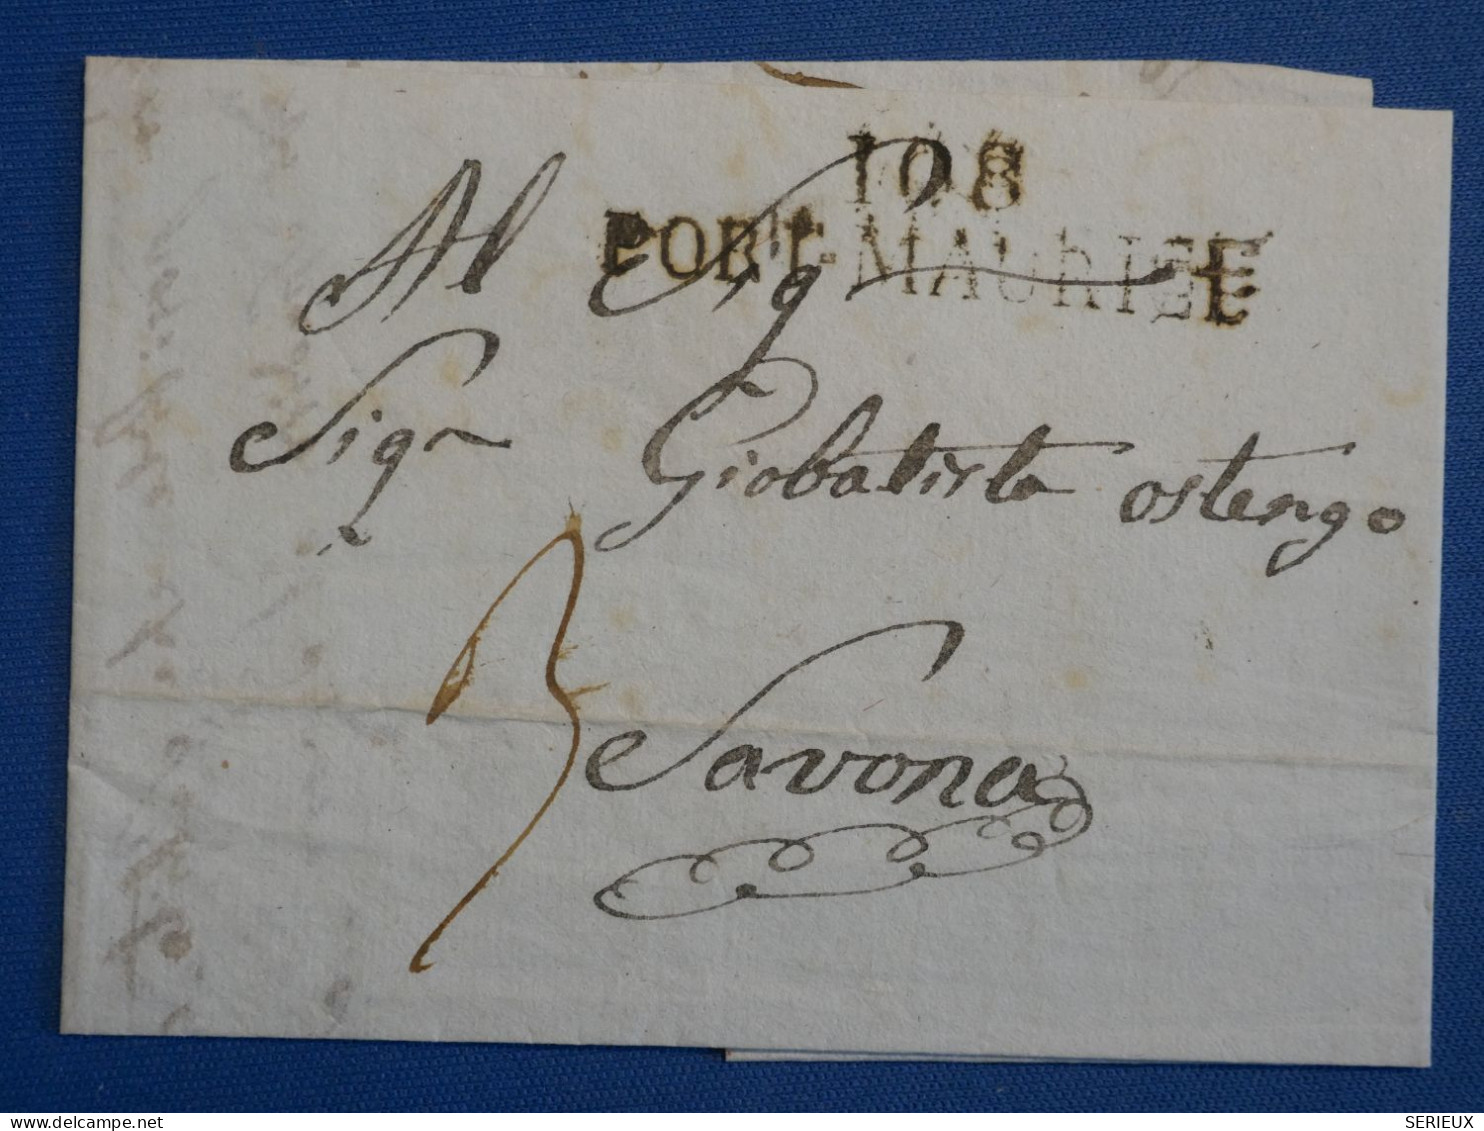 108
PORT-MAURICE
Al Sig.r
Sig.r Giobatista ostengo
3
Savona
www.delcampe.net
SERIEUX